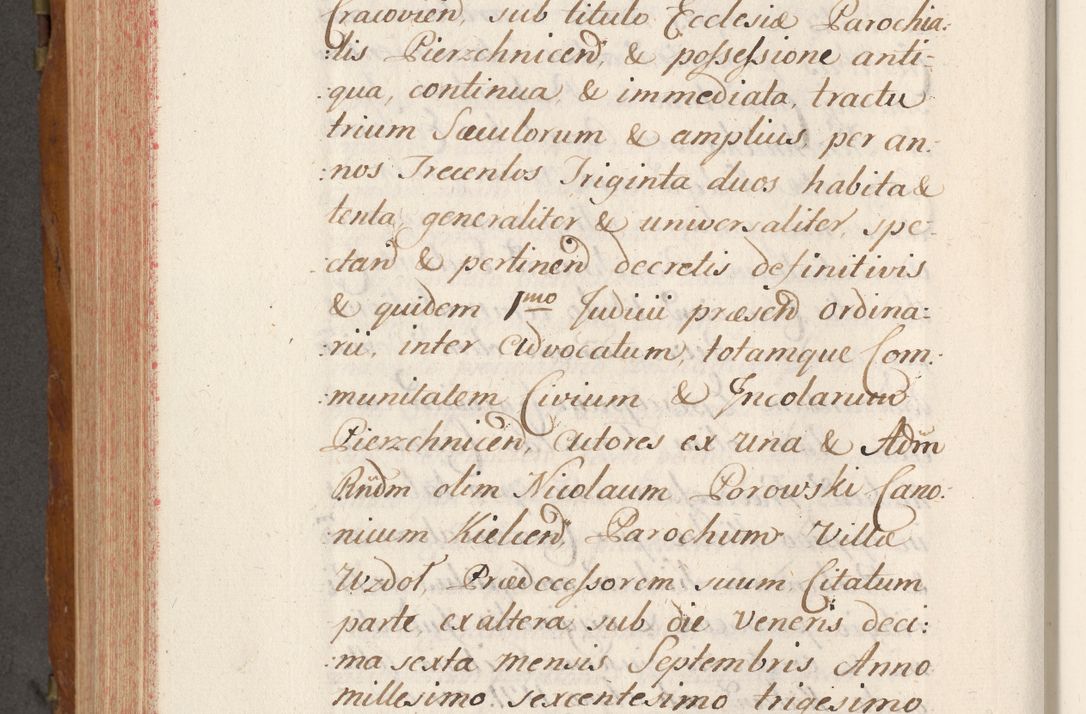 Cracovien̄, sub titulo Ecclesiæ Parochia:
:lis Pierzchnicen̄, & possessione anti:
:qua, continua, & immediata, tractu
trium Sæculorum & amplius, per an:
:nos Trecentos Triginta duos habita &
tenta, generaliter & universaliter, spe:
:ctan̄ & pertinen̄ decretis definitivis
& quidem 1mo Judicii præsen̄ Ordina:
:rii, inter Advocatum, totamque Com:
:munitatem Civium & Incolarum
Pierzchnicen̄, Actores ex una & Adm̄
Rn̄dm olim Nicolaum Porowski Cano:
nicum Kielcen̄, Parochum Villæ
Wzdoł, Prædecessorem suum Citatum
parte ex altera, sub die Veneris deci:
:ma sexta mensis Septembris Anno
millesimo sexcentesimo trigesimo